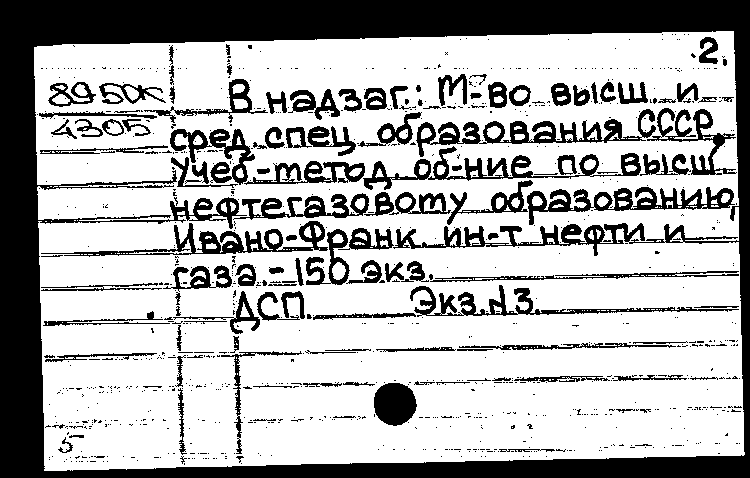 2.
8950К
4305
В надзаг.: М-во высш. и
сред. спец. образования СССР,
Учеб.-метод. об-ние по высш.
нефтегазовому образованию,
Ивано-Франк. ин-т нефти и
газа. - 150 экз.
ДСП. Экз. N 3.
5